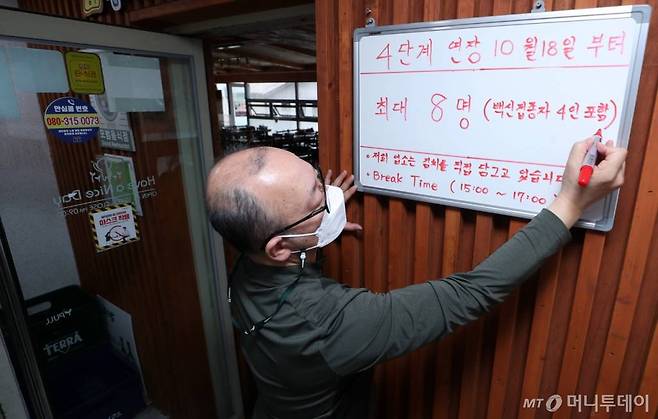 4단계 연장 10월 18일 부터
최대 8명 (백신접종자 4인 포함)
• 저희 업소는 김치를 직접 담그고 있습니다
• Break Time (15:00 ~ 17:00
안심콜 번호
080-315 0073
Have a Nice Day
PULL
TERRA
MT 머니투데이